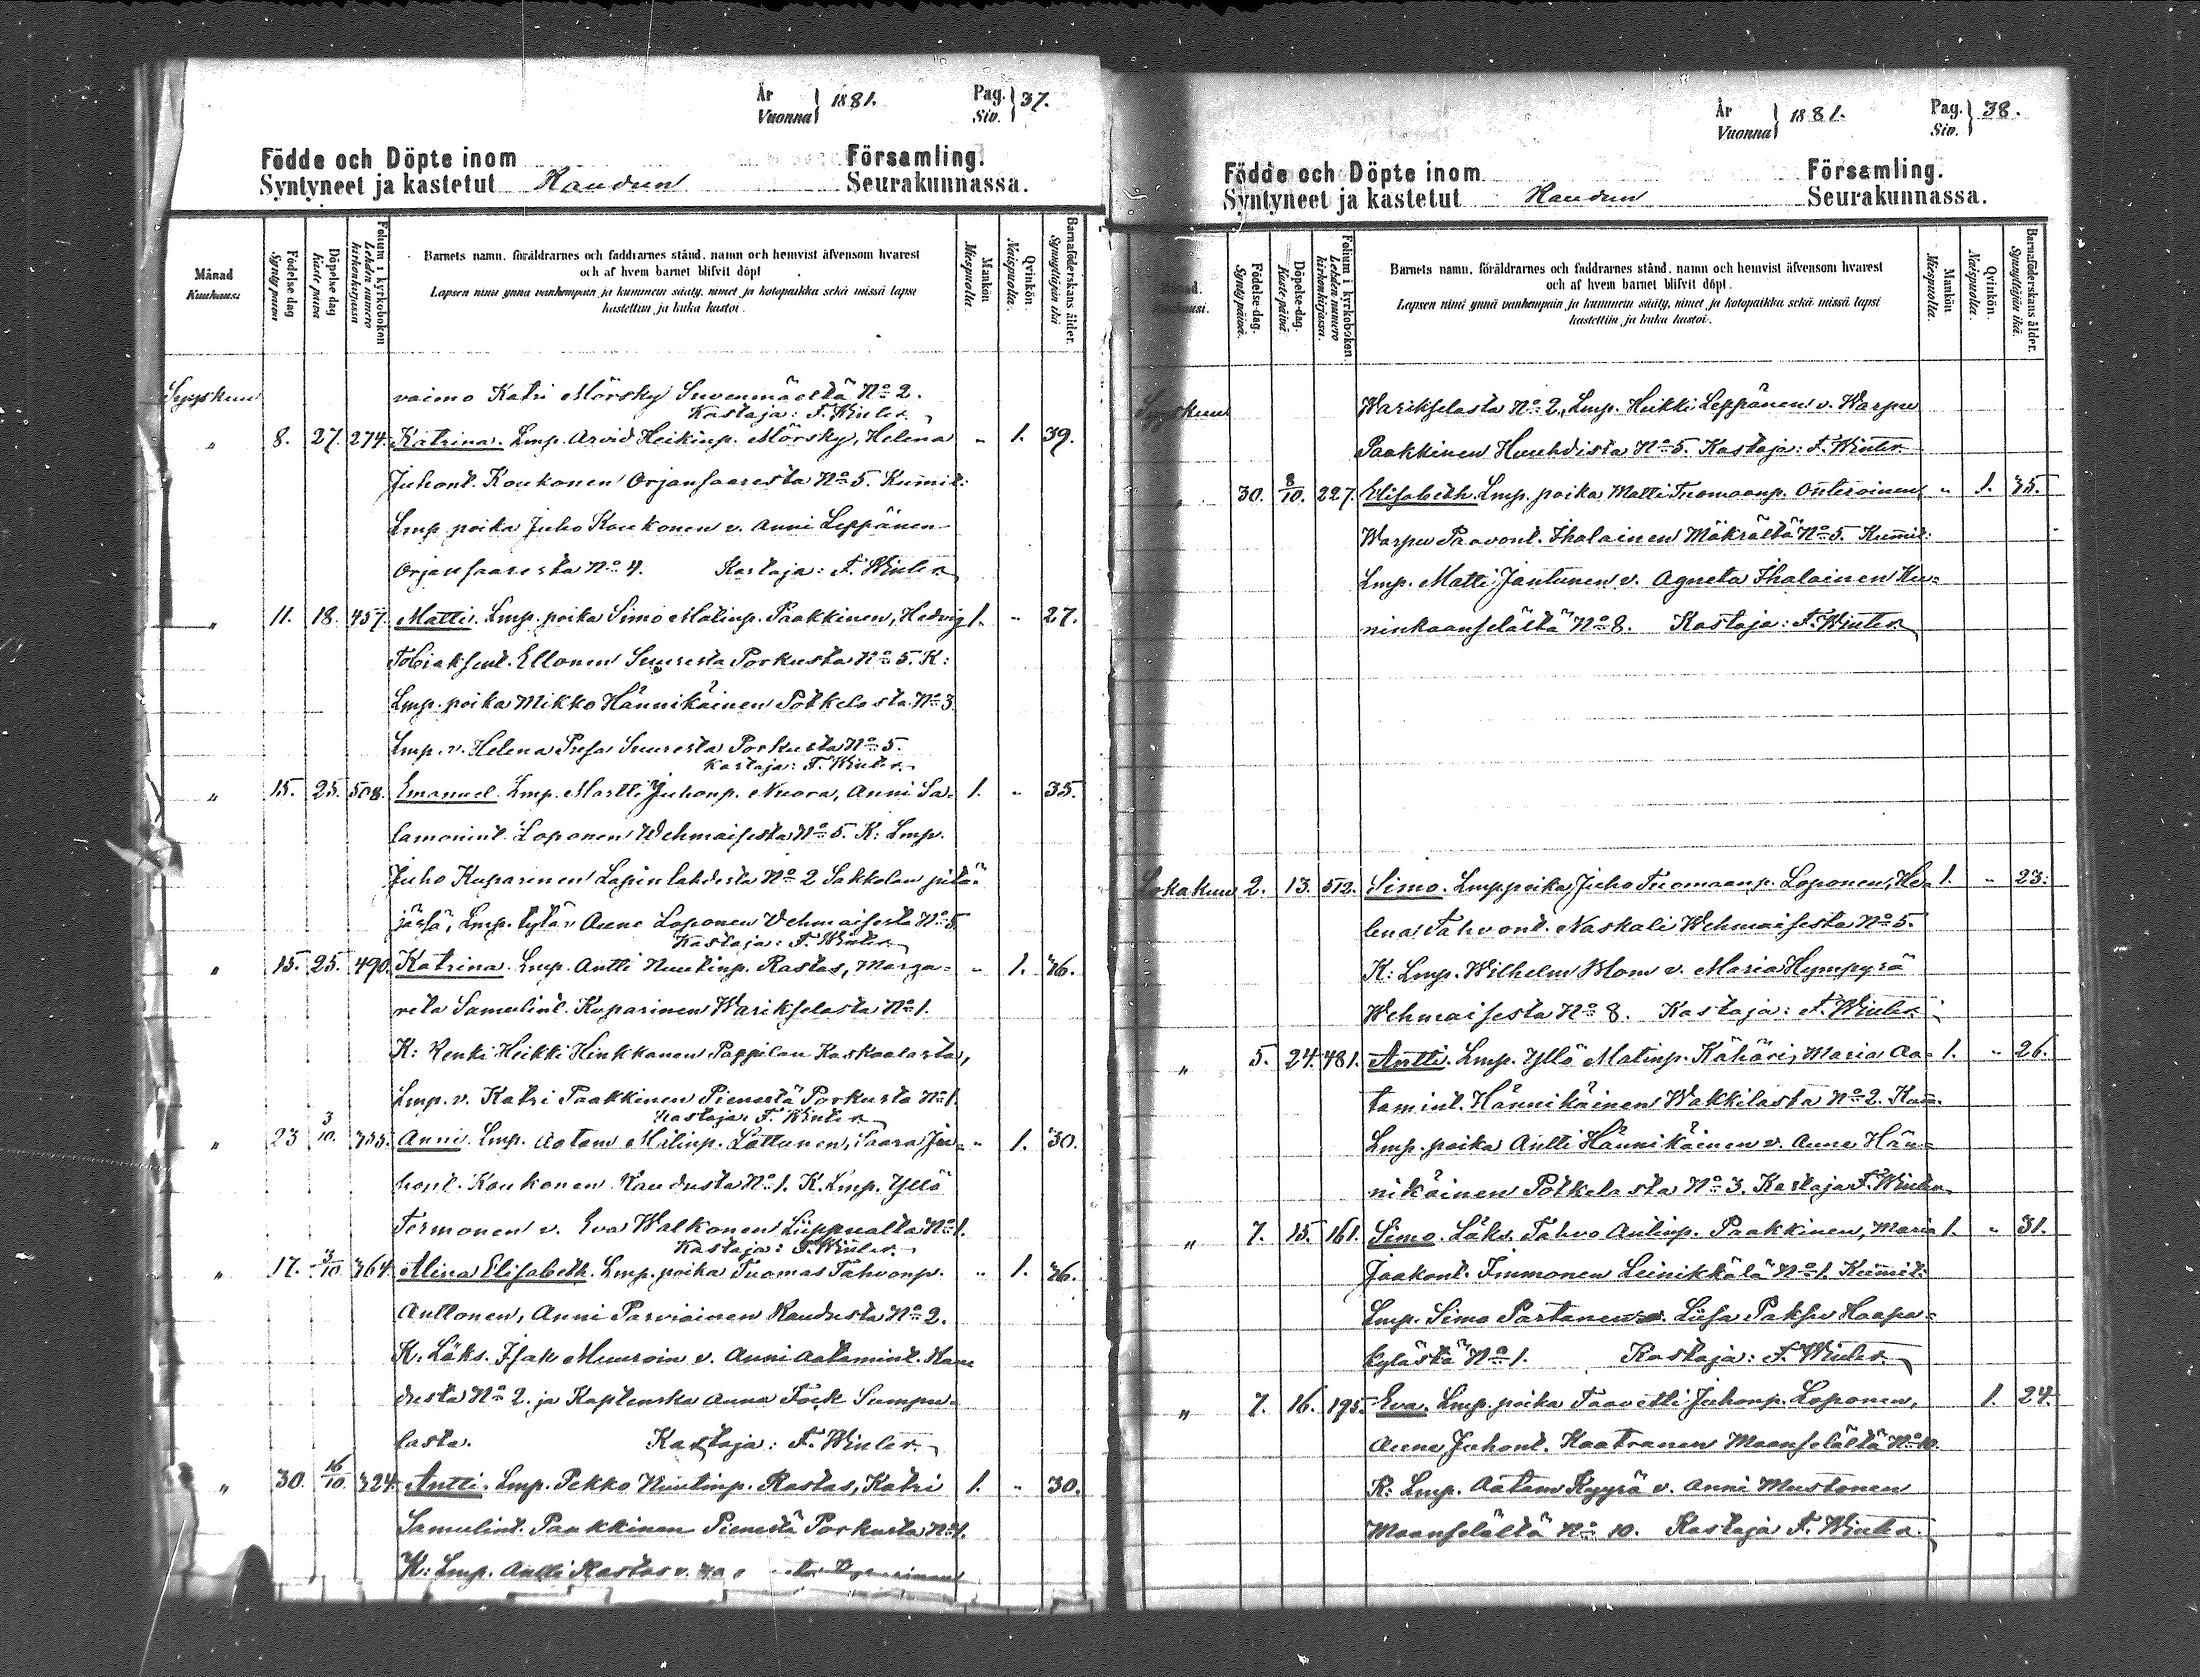 År 1881. Pag. 37.
Vuonna Siv.
Födde och Döpte inom Församling.
Syntyneet ja kastetut Raudun Seurakunnassa.
Månad Kuukausi
Födelse dag Synty päivä
Döpelse dag Kaste päivä
Folium i kyrkoboken Lehden numero kirkonkirjassa
Barnets namn, föräldrarnes och faddrarnes stånd, namn och hemvist äfvensom hvarest
och af hvem barnet blifvit döpt
Lapsen nimi ynnä vanhempain ja kummein sääty, nimet ja kotopaikka sekä missä lapsi
kastettiin ja kuka kastoi.
Mankön Miespuolia.
Qvinkön. Naispuolia.
Barnaföderskans ålder. Synnyttäjän ikä
Syyskuu vaimo Katri Mörsky Suvenmäeltä No 2.
Kastaja: F. Winter
" 8. 27. 274. Katrina. Lmp. Arvid Heikinp. Mörsky, Helena " 1. 39.
Juhont. Koukonen Orjansaaresta No 5. Kummit:
Lmp. poika Juho Koukonen v. Anni Leppänen
Orjansaaresta No 4. Kastaja: F. Winter
" 11. 18. 457. Matti. Lmp. poika Simo Matinp. Paakkinen, Hedvig 1. " 27.
Tobiaksent. Ellonen Suuresta Porkusta No 5. K:
Lmp. poika Mikko Hännikäinen Potkelasta No 3
Lmp. v. Helena Pusa Suuresta Porkusta No 5.
Kastaja: F. Winter
" 15. 25. 508. Emanuel. Lmp. Martti Juhonp. Nuora, Anni Sa- 1. " 35.
lamonint. Loponen Wehmaisesta No 5. K: Lmp.
Juho Kuparinen Lapinlahdesta No 2 Sakkolan pitä-
jässä, Lmp. tytär Anne Loponen Wehmaisesta No 5
Kastaja: F. Winter
" 15. 25. 490. Katrina. Lmp. Antti Nuutinp. Rastas, Marga- " 1. 36.
reta Samulint. Kuparinen Warikselasta No 1.
K: Renki Heikki Hinkkanen Pappilan Kaskaalasta,
Lmp. v. Katri Paakkinen Pienestä Porkusta No 1.
Kastaja: F. Winter
" 23 3/10. 355. Anni. Lmp. Aatam Matinp. Lättunen, Saara Ju- " 1. 30.
hont. Koukonen Raudusta No 1. K. Lmp. Yllö
Termonen v. Eva Walkonen Liippualta No 1.
Kastaja: F. Winter
" 17. 3/10 364. Miina Elisabeth. Lmp. poika Tuomas Tahvonp. " 1. 36.
Anttonen, Anni Parviainen Raudusta No 2.
K. Läks. Isak Muuroin v. Anni Aatamint. Rau-
dusta No 2. ja Kaptenska Anna Fock Sumpu-
lasta. Kastaja: F. Winter
" 30. 16/10. 324. Antti. Lmp. Pekko Nuutinp. Rastas, Katri 1. " 30.
Samulint. Paakkinen Pienestä Porkusta No 1.
K: Lmp. Antti Rastas v.
År 1881. Pag. 38.
Vuonna Siv.
Födde och Döpte inom Församling.
Syntyneet ja kastetut Raudun Seurakunnassa.
Månad. Kuukausi.
Födelse-dag. Synty-päivä.
Döpelse-dag. Kaste-päivä
Folium i kyrkoboken. Lehden numero kirkonkirjassa.
Barnets namn, föräldrarnes och faddrarnes stånd, namn och hemvist äfvensom hvarest
och af hvem barnet blifvit döpt.
Lapsen nimi ynnä vanhempain ja kummein sääty, nimet ja kotopaikka sekä missä lapsi
kastettiin ja kuka kastoi.
Mankön Miespuolia.
Qvinkön. Naispuolia.
Barnaföderskans ålder. Synnyttäjän ikä.
Syyskuu Warikselasta No 2, Lmp. Heikki Leppänen v. Warpu
Paakkinen Huuhdista No 5. Kastaja: F. Winter
" 30. 8/10. 227. Elisabeth. Lmp. poika Matti Tuomaanp. Onteroinen, " 1. 35.
Warpu Paavont. Ihalainen Mäkrältä No 5. Kummit:
Lmp. Matti Jantunen v. Agneta Ihalainen Ku-
ninkaanselältä No 8. Kastaja: F. Winter
Lokakuu 2. 13. 512. Simo. Lmp. poika Juho Tuomaanp. Loponen, He- 1. " 23.
lena Tahvont. Naskali Wehmaisesta No 5.
K: Lmp. Wilhelm Blom v. Maria Hympyrä
Wehmaisesta No 8. Kastaja: F. Winter
" 5. 24. 481. Antti. Lmp. Yllö Matinp. Kähäri, Maria Aa- 1. " 26.
tamint. Hännikäinen Wakkilasta No 2. Kumm.
Lmp. poika Antti Hännikäinen v. Anne Hän-
nikäinen Potkelasta No 3. Kastaja F. Winter
" 7. 15. 161. Simo. Läks. Tahvo Antinp. Paakkinen, Maria 1. " 31.
Jaakont. Immonen Leinikkälä No 1. Kummit:
Lmp. Simo Partanen v. Liisa Paksu Haapa-
kylästä No 1. Kastaja: F. Winter
" 7. 16. 195. Eva. Lmp. poika Taavetti Juhonp. Loponen, 1. 24.
Anne Juhont. Kaatranen Maanselältä No 10.
K: Lmp. Aatam Kyyrä v. Anni Mustonen
Maanselältä No 10. Kastaja F. Winter.